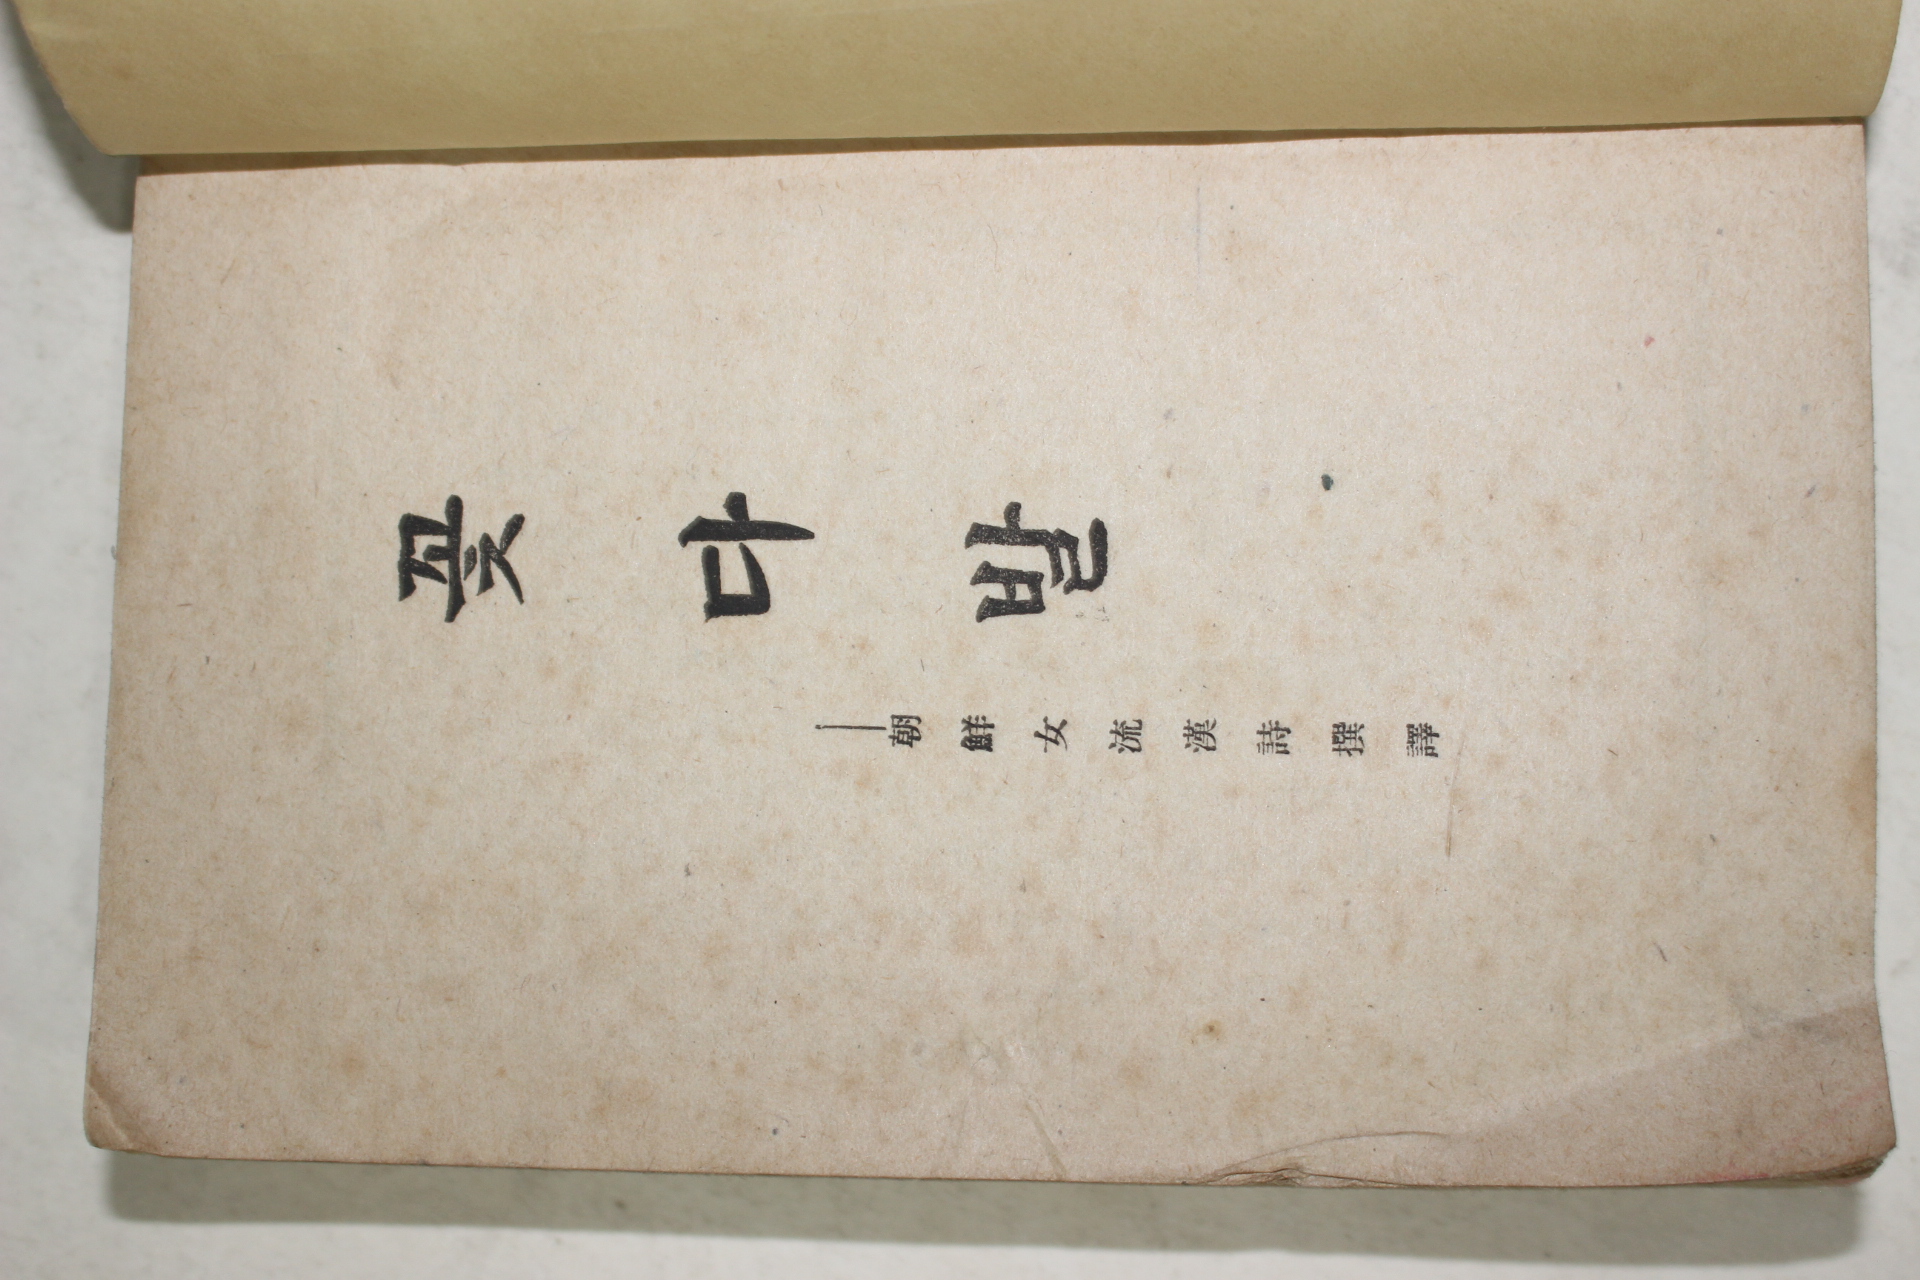 꽃다발
—朝鮮女流漢詩撰譯